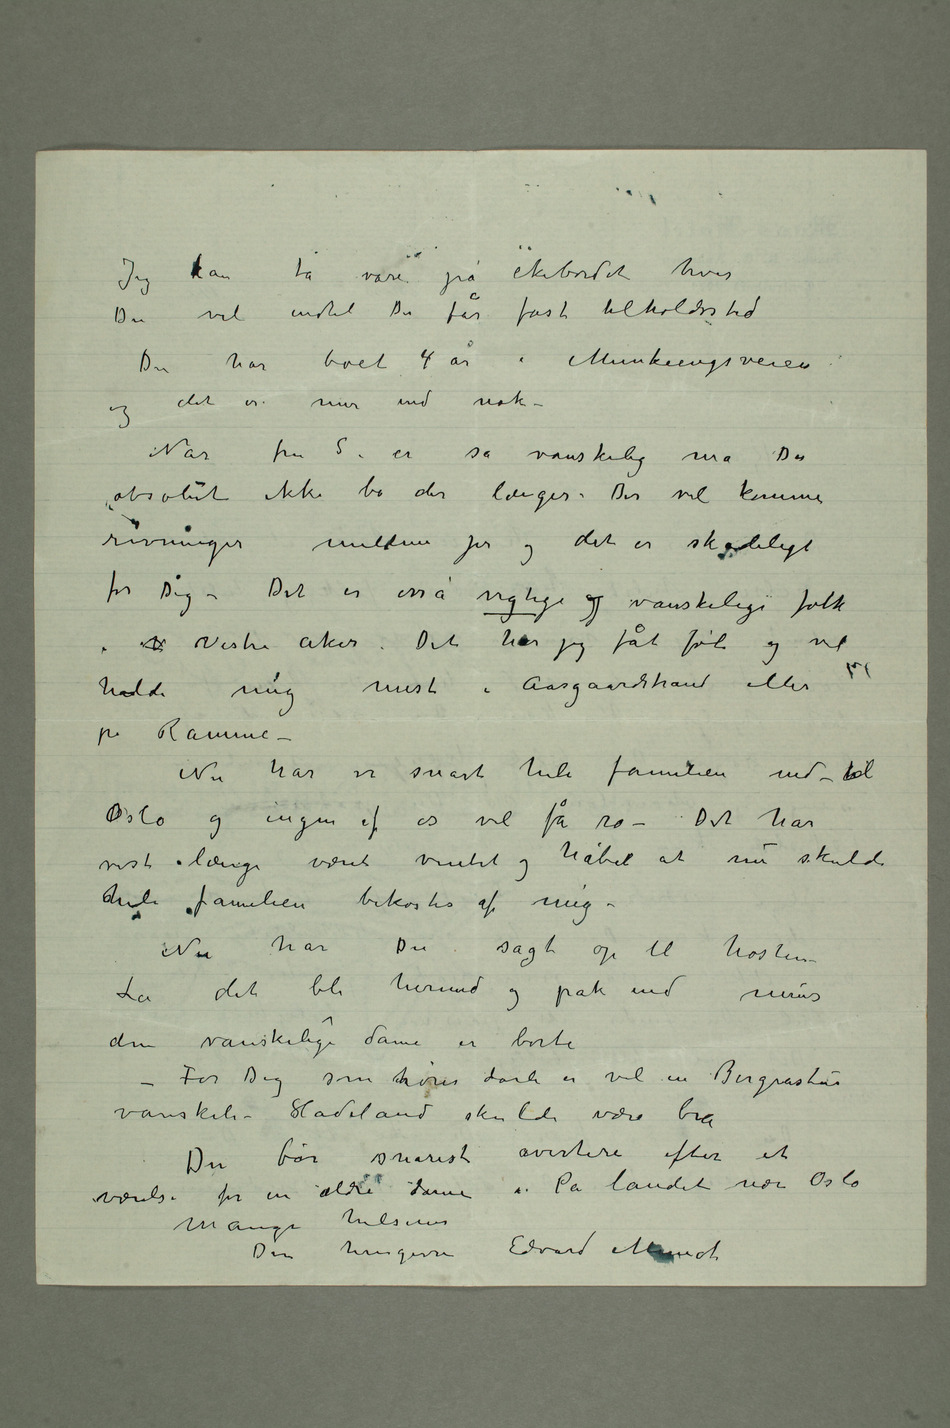 Jeg kan ta vare på ekebordet hvis
Du vil indtil Du får fast tilholdssted
Du har boet 4 år i Munkengsveien
og det er mer end nok –
Når fru S. er så vanskelig må Du
absolut ikke bo der længer. Der vil komme
rivninger mellem jer og det er skadeligt
for Dig – Det er også vigtige og vanskelige folk
i Vestre Aker. Det har jeg fåt føle og vil
holde mig mest i Aasgaardstrand eller
på Ramme –
Nu har vi snart hele familien ned til
Oslo og ingen af os vil få ro – Det har
vist længe været ventet og håbet at nu skulde
hele familien bekostes af mig –
Nu har Du sagt op til høsten –
La det bli hermed og pak ned mens
den vanskelige dame er borte
– For Dig som hører dårli er vel en Bergrasthus
vanskeli – Hadeland skulde være bra
Du bør snarest avertere efter et
værelse for en ældre dame i. På landet nær Oslo
Mange hilsener
Din hengivne Edvard Munch